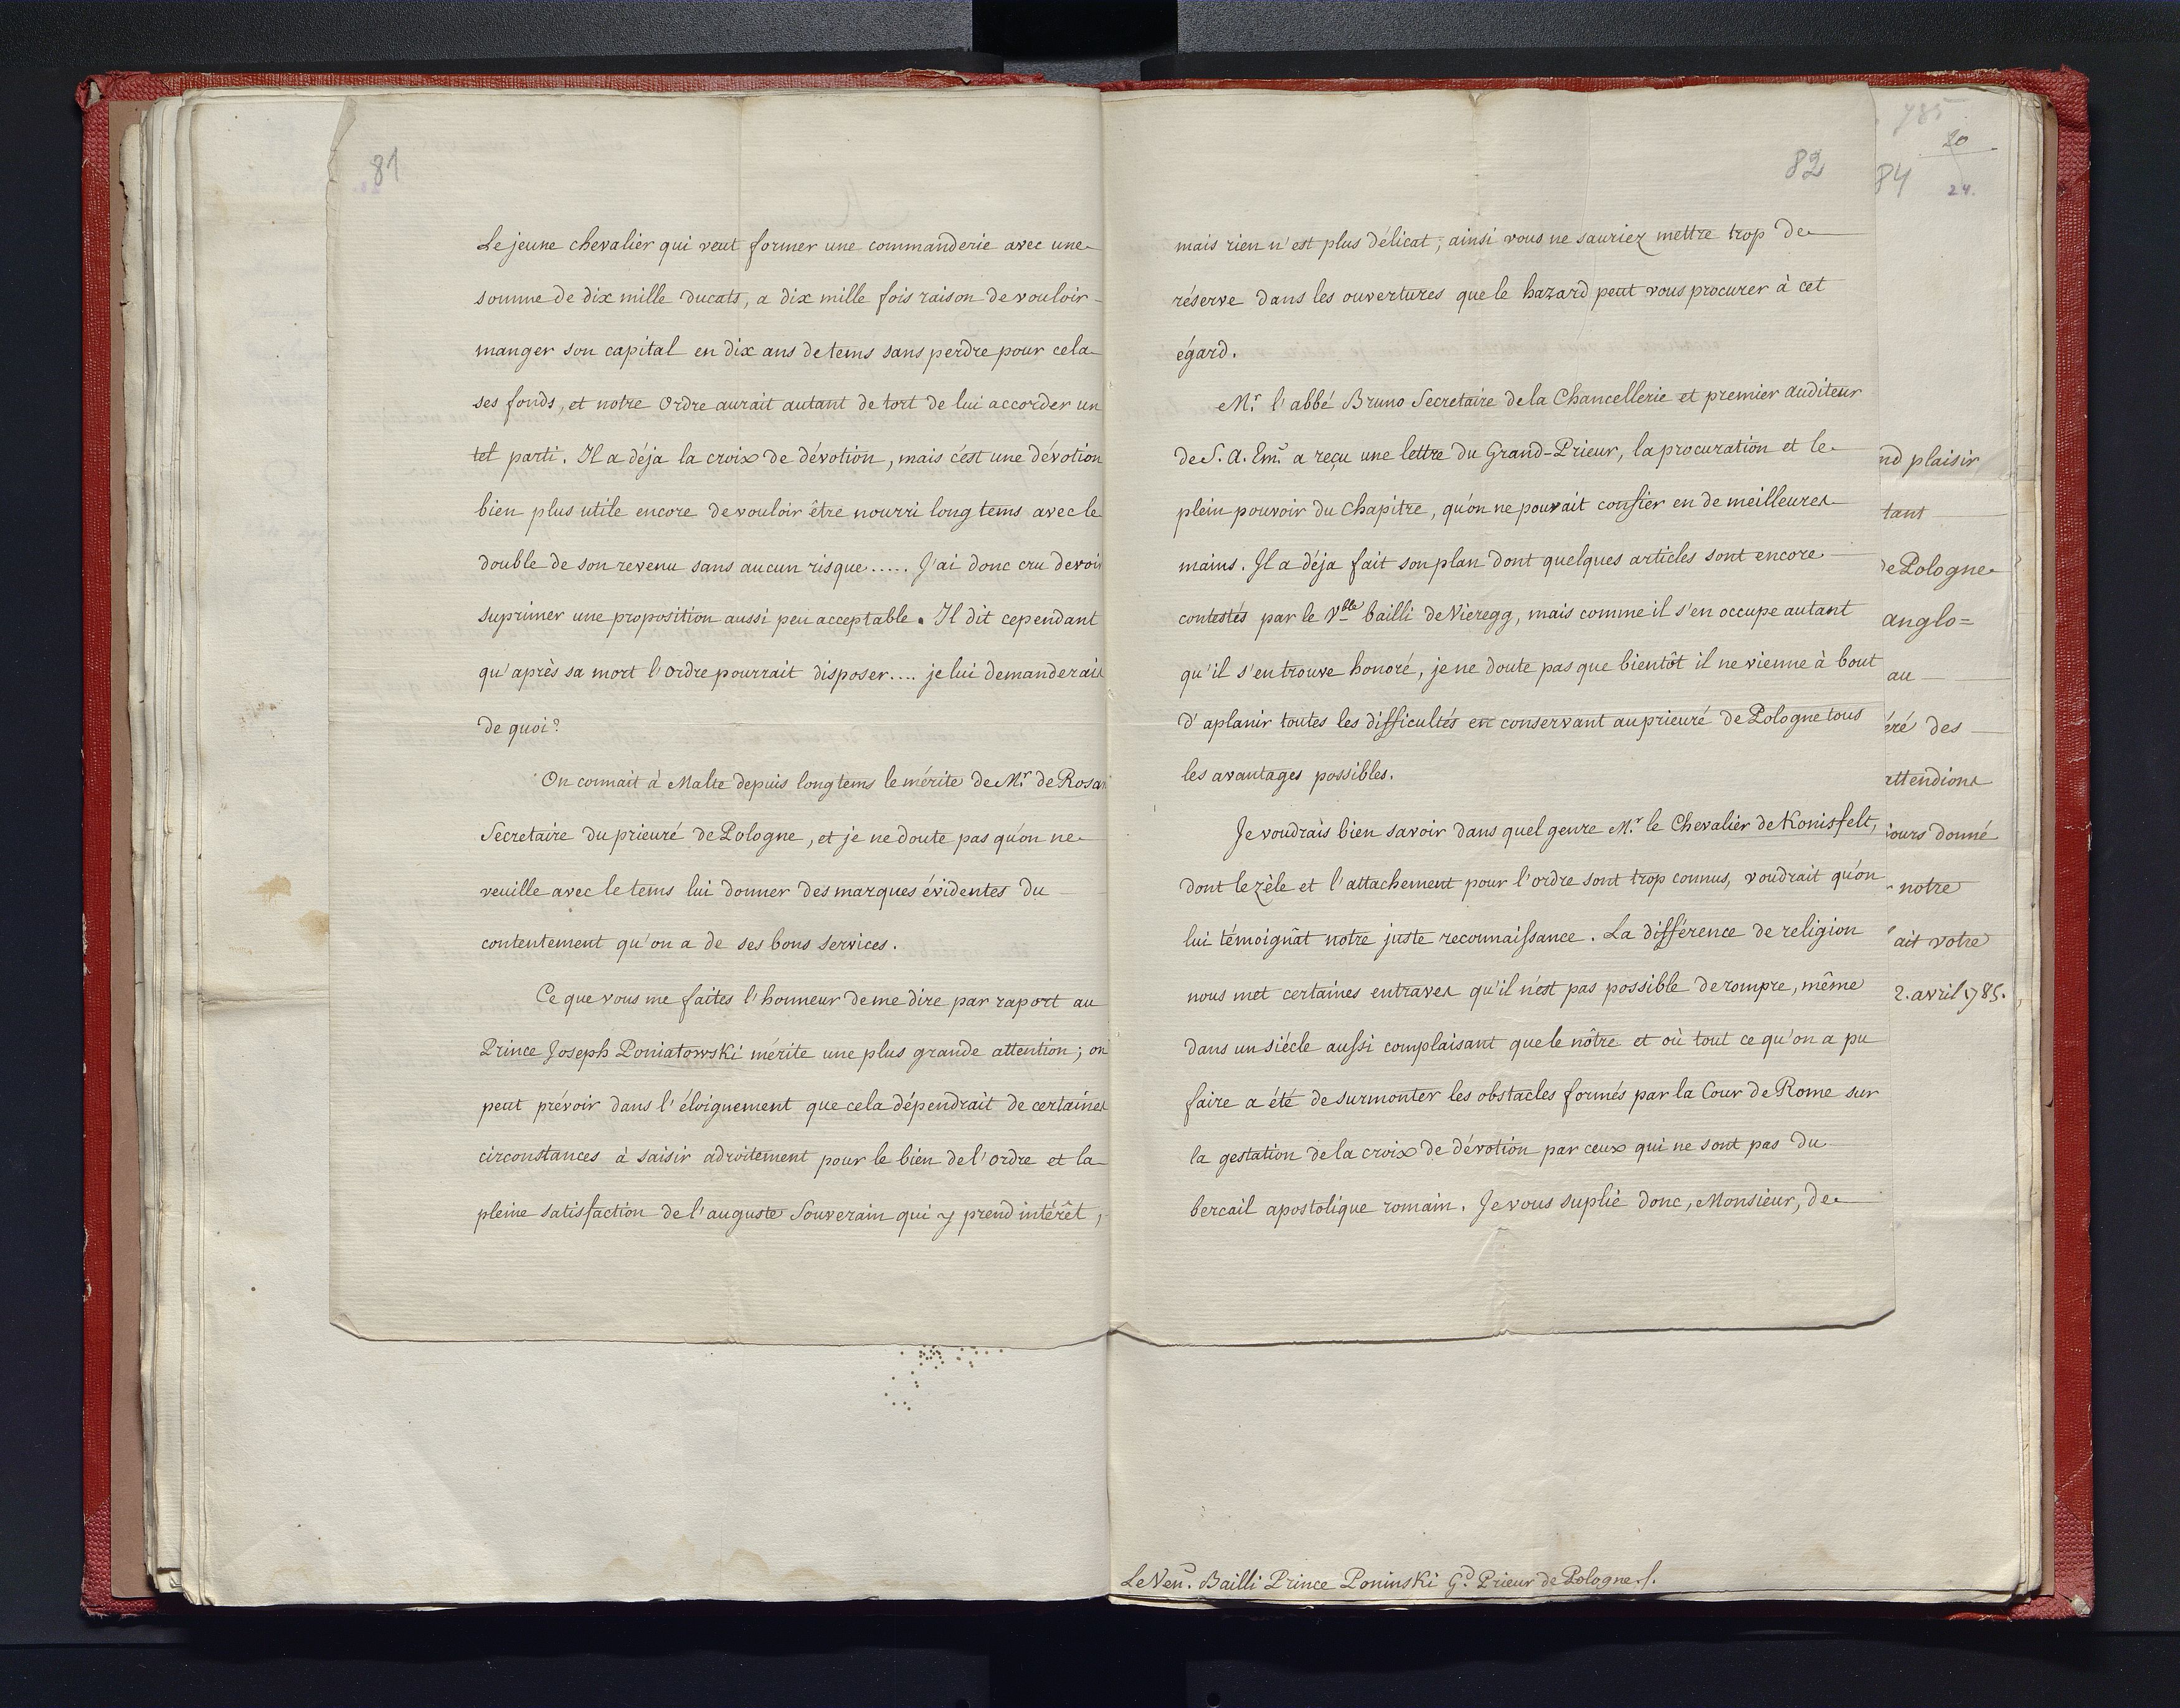 81
Le jeune chevalier qui veut former une commanderie avec une
somme de dix mille ducats, a dix mille fois raison de vouloir
manger son capital en dix ans de tems sans perdre pour cela
ses fonds, et notre Ordre aurait autant de tort de lui accorder un
tel parti. Il a déja la croix de dévotion, mais c'est une dévotion
bien plus utile encore de vouloir être nourri long tems avec le
double de son revenu sans aucun risque..... J'ai donc cru devoir
suprimer une proposition aussi peu acceptable. Il dit cependant
qu'après sa mort l'ordre pourrait disposer.... je lui demanderais
de quoi?
On connait à Malte depuis longtems le mérite de Mr. de Rosan
Secretaire du prieuré de Pologne, et je ne doute pas qu'on ne
veuille avec le tems lui donner des marques évidentes du
contentement qu'on a de ses bons services.
Ce que vous me faites l'honneur de me dire par raport au
Prince Joseph Poniatowski mérite une plus grande attention; on
peut prévoir dans l'éloignement que cela dépendrait de certaines
circonstances à saisir adroitement pour le bien de l'ordre et la
pleine satisfaction de l'auguste Souverain qui y prend intérêt,
82
mais rien n'est plus délicat; ainsi vous ne sauriez mettre trop de
réserve dans les ouvertures que le hazard peut vous procurer à cet
égard.
Mr. l'abbé Bruno Secretaire de la Chancellerie et premier auditeur
de S. A. Eme. a reçu une lettre du Grand-Prieur, la procuration et le
plein pouvoir du Chapitre, qu'on ne pouvait confier en de meilleures
mains. Il a déja fait son plan dont quelques articles sont encore
contestés par le Vble bailli de Vieregg, mais comme il s'en occupe autant
qu'il s'en trouve honoré, je ne doute pas que bientôt il ne vienne à bout
d'aplanir toutes les difficultés en conservant au prieuré de Pologne tous
les avantages possibles.
Je voudrais bien savoir dans quel genre Mr. le Chevalier de Konisfelt,
dont le zèle et l'attachement pour l'ordre sont trop connus, voudrait qu'on
lui témoignât notre juste reconnaissance. La différence de religion
nous met certaines entraves qu'il n'est pas possible de rompre, même
dans un siécle aussi complaisant que le nôtre et où tout ce qu'on a pu
faire a été de surmonter les obstacles formés par la Cour de Rome sur
la gestation de la croix de dévotion par ceux qui ne sont pas du
bercail apostolique romain. Je vous suplie donc, Monsieur, de
785
20
84
24.
nd plaisir
tant
de Pologne
anglo=
au
éré des
attendions
jours donné
notre
ait votre
2. avril 1785.
Le Ven. Bailli Prince Poninski Gd. Prieur de Pologne